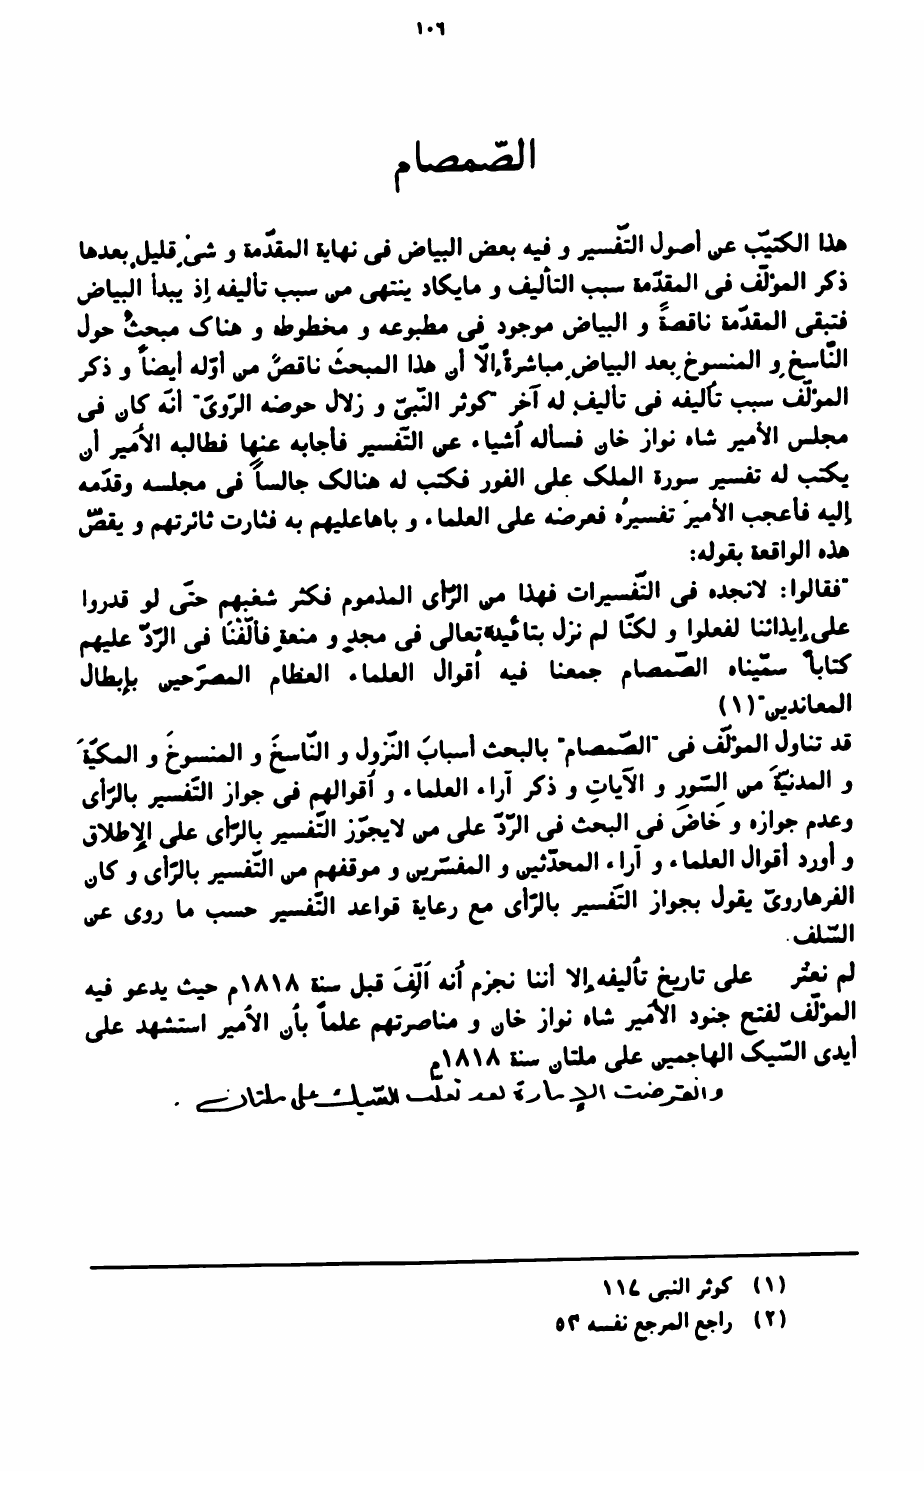 ١٠٦
الصّمصام
هذا الكتيّب عن أصول التّفسير و فيه بعض البياض فى نهاية المقدّمة و شئ قليل بعدها
ذكر المؤلّف فى المقدّمة سبب التأليف و مايكاد ينتهى من سبب تأليفه إذ يبدأ البياض
فتبقى المقدّمة ناقصةً و البياض موجود فى مطبوعه و مخطوطه و هناک مبحثٌ حول
النّاسخِ و المنسوخِ بعد البياضِ مباشرةً إلّا أن هذا المبحثَ ناقصٌ من أوّله أيضاً و ذكر
المؤلّف سبب تأليفه فى تأليفٍ له آخر "كوثر النّبىّ و زلال حوضه الرّوىّ" أنّه كان فى
مجلس الأمير شاه نواز خان فسأله أشياء عن التّفسير فأجابه عنها فطالبه الأمير أن
يكتب له تفسير سورة الملک على الفور فكتب له هنالک جالساً فى مجلسه وقدّمه
إليه فأعجب الأميرَ تفسيرُه فعرضه على العلماء و باهاعليهم به فثارت ثائرتهم و يقصّ
هذه الواقعة بقوله:
"فقالوا: لانجده فى التّفسيرات فهذا من الرّأى المذموم فكثر شغبهم حتّى لو قدروا
على إيذائنا لفعلوا و لكنّا لم نزل بتائيده تعالى فى مجدٍ و منعةٍ فألّفْنَا فى الرّدّ عليهم
كتاباً سمّيناه الصّمصام جمعنا فيه أقوال العلماء العظام المصرّحين بإبطال
المعاندين"(١)
قد تناول المؤلّف فى "الصّمصام" بالبحث أسبابَ النّزول و النّاسخَ و المنسوخَ و المكيّةَ
و المدنيّةَ من السّور و الآياتِ و ذكر آراء العلماء و أقوالهم فى جواز التّفسير بالرّأى
وعدم جوازه و خَاضَ فى البحث فى الرّدّ على من لايجوّز التّفسير بالرّأى على الإطلاق
و أورد أقوال العلماء و آراء المحدّثين و المفسّرين و موقفهم من التّفسير بالرّأى و كان
الفرهاروىّ يقول بجواز التّفسير بالرّأى مع رعاية قواعد التّفسير حسب ما روى عن
السّلف.
لم نعثُر على تاريخ تأليفه إلا أننا نجزم أنه ألِّفَ قبل سنة ١٨١٨م حيث يدعو فيه
المؤلّف لفتح جنود الأمير شاه نواز خان و مناصرتهم علماً بأن الأمير استشهد على
أيدى السّيک الهاجمين على ملتان سنة ١٨١٨م
وانقرضت الإمارة بعد تغلب السّيك على ملتان .
(١) كوثر النبى ١١٧
(٢) راجع المرجع نفسه ٥٣